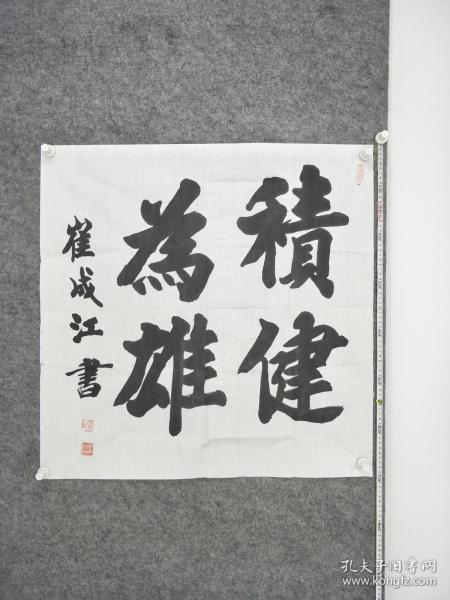 積健
為雄
崔成江書
孔夫子旧书网
www.kongfz.com